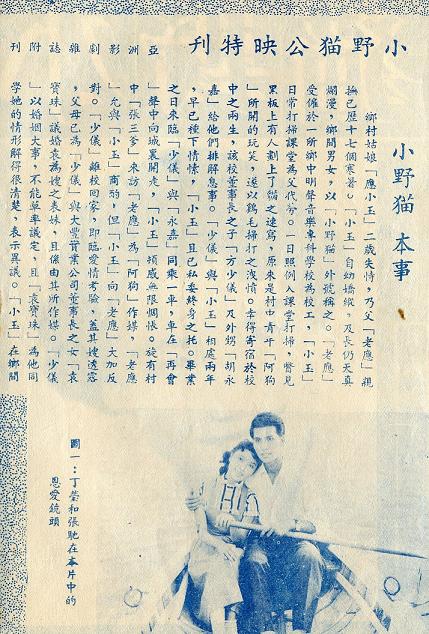 小野猫公映特刊
亞洲影劇雜誌附刊
小野猫 本事
鄉村姑娘「應小玉」二歲失恃，乃父「老應」親
撫已歷十七個寒暑。「小玉」自幼嬌縱，及長仍天真
爛漫，鄉間男女，以「小野猫」外號稱之。「老應」
受僱於一所鄉中明聲音樂專科學校為校工，「小玉」
日常打掃課堂為父代勞。一日照例入課堂打掃，瞥見
黑板上有人劃上了貓之速寫，原來是村中青年「阿狗
」所開的玩笑，遂以鷄毛掃打之洩憤。幸得寄宿於校
中之兩生，該校董事長之子「方少儀」及外甥「胡永
嘉」給他們排解息事。「少儀」與「小玉」相處兩年
，早已種下情愫，「小玉」且已私委終身之托。畢業
之日來臨「少儀」與「永嘉」同乘一車，車在「再會
」聲中向城裏開走，「小玉」頓感無限惆悵。旋有村
中「張三爹」來訪「老應」為「阿狗」作媒，「老應
」允與「小玉」商酌，但「小玉」向「老應」大加反
對。「少儀」離校回家，即臨愛情考驗，蓋其嫂透露
，父母已為「少儀」與大豐實業公司董事長之女「袁
寶珠」議婚袁為嫂之表妹，且係由其所作媒。「少儀
」以婚姻大事，不能草率議定，且「袁寶珠」為他同
學她的情形解得很清楚，表示異議。「小玉」在鄉間
圖一：丁瑩和張馳在本片中的
恩愛鏡頭